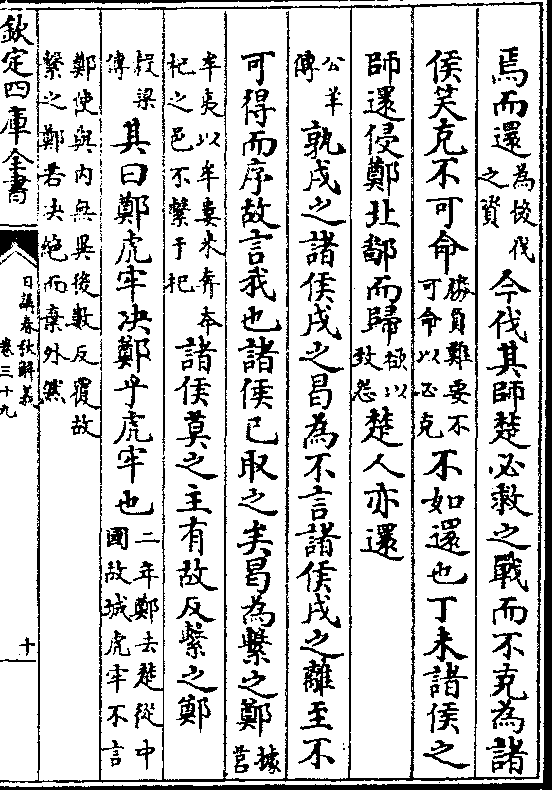 焉而還為後伐之資今伐其師楚必救之戰而不克為諸
侯笑克不可命勝負難要不可命以必克不如還也丁未諸侯之
師還侵鄭北鄙而歸欲以致怨楚人亦還
公羊傳孰戍之諸侯戍之曷為不言諸侯戍之離至不
可得而序故言我也諸侯已取之矣曷為繫之鄭據莒
牟夷以牟婁來奔本杞之邑不繫于杞諸侯莫之主有故反繫之鄭
穀梁傳其曰鄭虎牢决鄭乎虎牢也二年鄭去楚從中國故城虎牢不言
鄭使與内無異後數反覆故繫之鄭若决絶而棄外然
欽定四庫全書
日講春秋解義
卷三十九
十